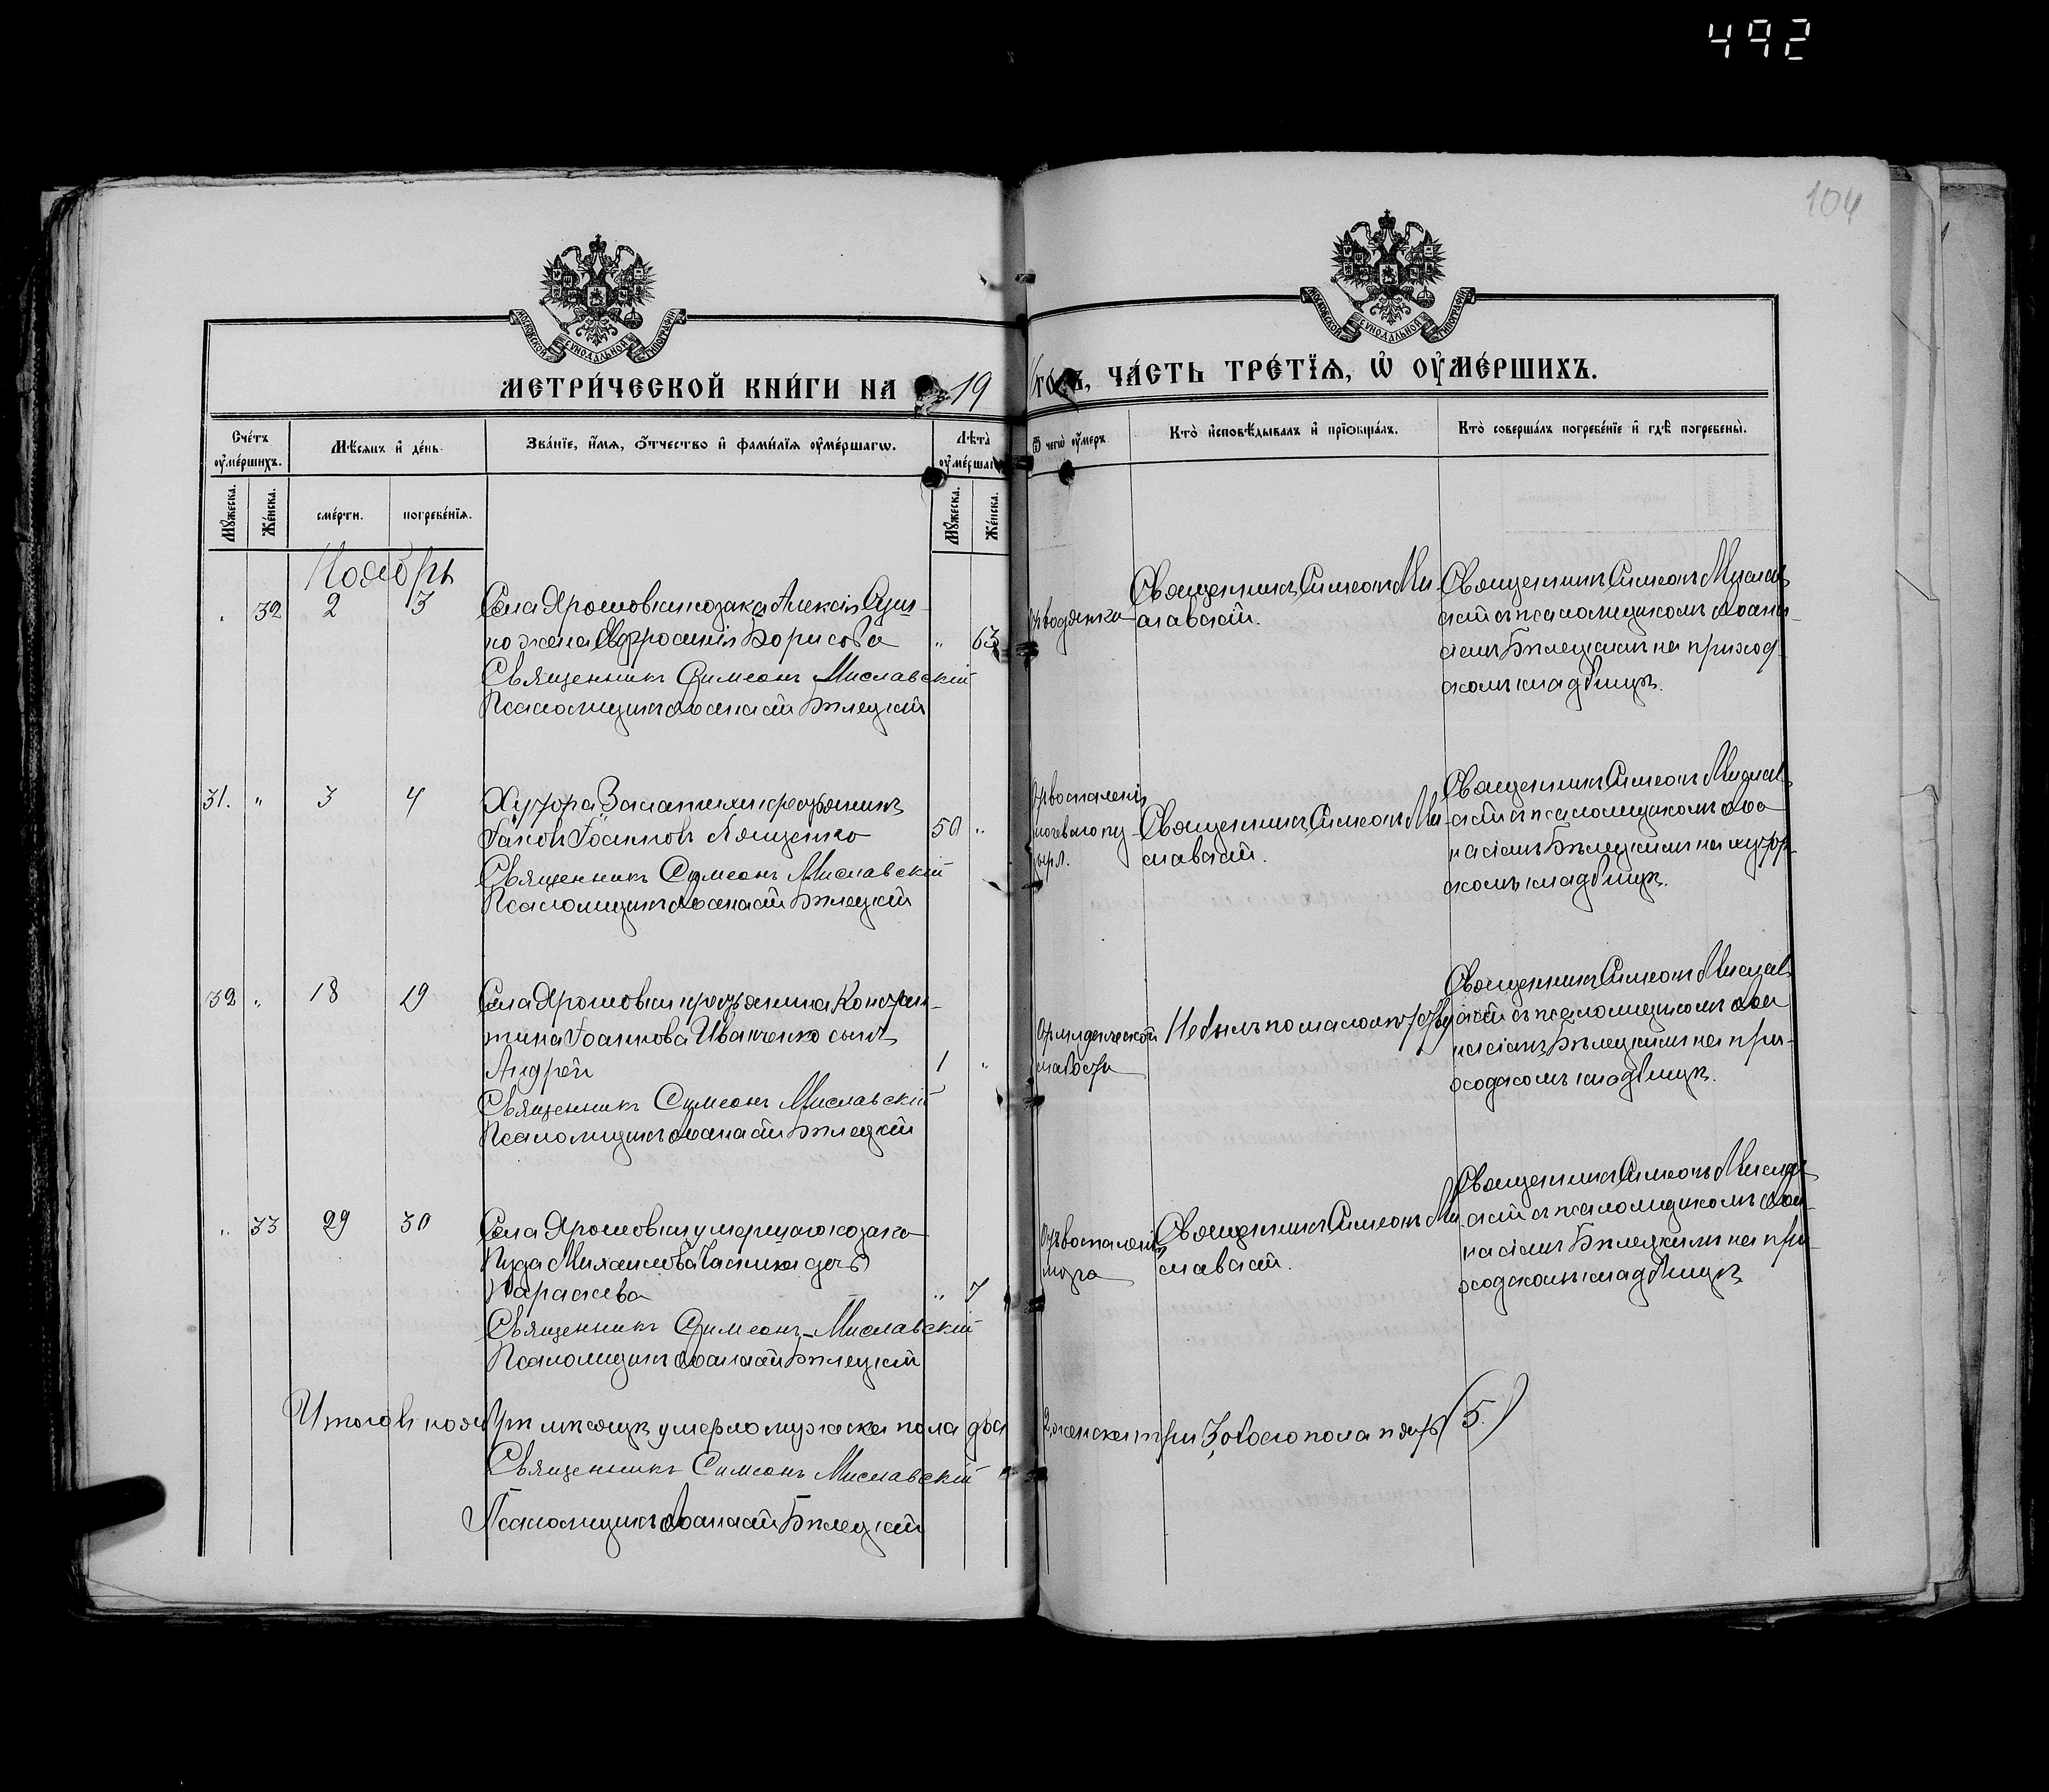 492
104
МОСКОВСКОЙ СѴНОДАЛЬНОЙ ТИПОГРАФІИ
МОСКОВСКОЙ СѴНОДАЛЬНОЙ ТИПОГРАФІИ
МЕТРИ́ЧЕСКОЙ КНИ́ГИ НА 19
го́дъ, ЧА́СТЬ ТРЕ́ТЇѦ, Ѡ҆ ОУ҆МЕ́РШИХЪ.
Сче́тъ оу҆ме́ршихъ.
Мѣ́сѧцъ и҆ де́нь.
Зва́нїе, и҆́мѧ, ѻ҆́тчество и҆ фами́лїѧ оу҆ме́ршагѡ.
Лѣ́та оу҆ме́ршагѡ
Ѿ чегѡ̀ оу҆́меръ.
Кто̀ и҆сповѣ́дывалъ и҆ прїѡбща́лъ.
Кто̀ соверша́лъ погребе́нїе и҆ гдѣ̀ погребены̀.
Мꙋ́жеска.
Же́нска.
сме́рти.
погребе́нїѧ.
Мꙋ́жеска.
Же́нска.
Ноябрь
32 2 3 Села Ярошовки козака Алексія
но жена Евфросинія Борисова „ 63
Священникъ Симеонъ Миславскій
Псаломщикъ Аѳанасій Бѣлецкій
Отъ водянки
Священникъ Симеонъ Ми-
славскій.
Священникъ Симеонъ Мислав
скій съ псаломщикомъ Аѳана-
сіемъ Бѣлецкимъ на приход-
скомъ кладбищѣ.
31. „ 3 4 Хутора крестьянинъ
Іаковъ Іоанновъ Лященко 50 „
Священникъ Симеонъ Миславскій
Псаломщикъ Аѳанасій Бѣлецкій
Отъ воспаленія
мочевого пу-
зыря.
Священникъ Симеонъ Ми-
славскій.
Священникъ Симеонъ Мислав
скій съ псаломщикомъ Аѳа
насіемъ Бѣлецкимъ на хутор-
скомъ кладбищѣ.
32 „ 18 19 Села Ярошовки крестьянина Констан-
тина Іоаннова Иванченко сынъ
Андрей 1 „
Священникъ Симеонъ Миславскій
Псаломщикъ Аѳанасій Бѣлецкій
От младенческой
слабости
Не былъ по малолѣтству
Священникъ Симеонъ Мислав
скій съ псаломщикомъ Аѳа
насіемъ Бѣлецкимъ на при-
ходскомъ кладбищѣ.
„ 33 29 30 Села Ярошовки умершаго козака
Михаилова дочь
Параскева „ 7
Священникъ Симеонъ Миславскій
Псаломщикъ Аѳанасій Бѣлецкій
Отъ воспаленія
мозга
Священникъ Симеонъ Ми
славскій.
Священникъ Симеонъ Мислав
скій съ псаломщикомъ Аѳа-
насіемъ Бѣлецкимъ на при-
ходскомъ кладбищѣ
Итого въ ноябрѣ мѣсяцѣ умерло мужеска пола два 2, женска три 3, обоего пола пять (5.)
Священникъ Симеонъ Миславскій
Псаломщикъ Аѳанасій Бѣлецкій